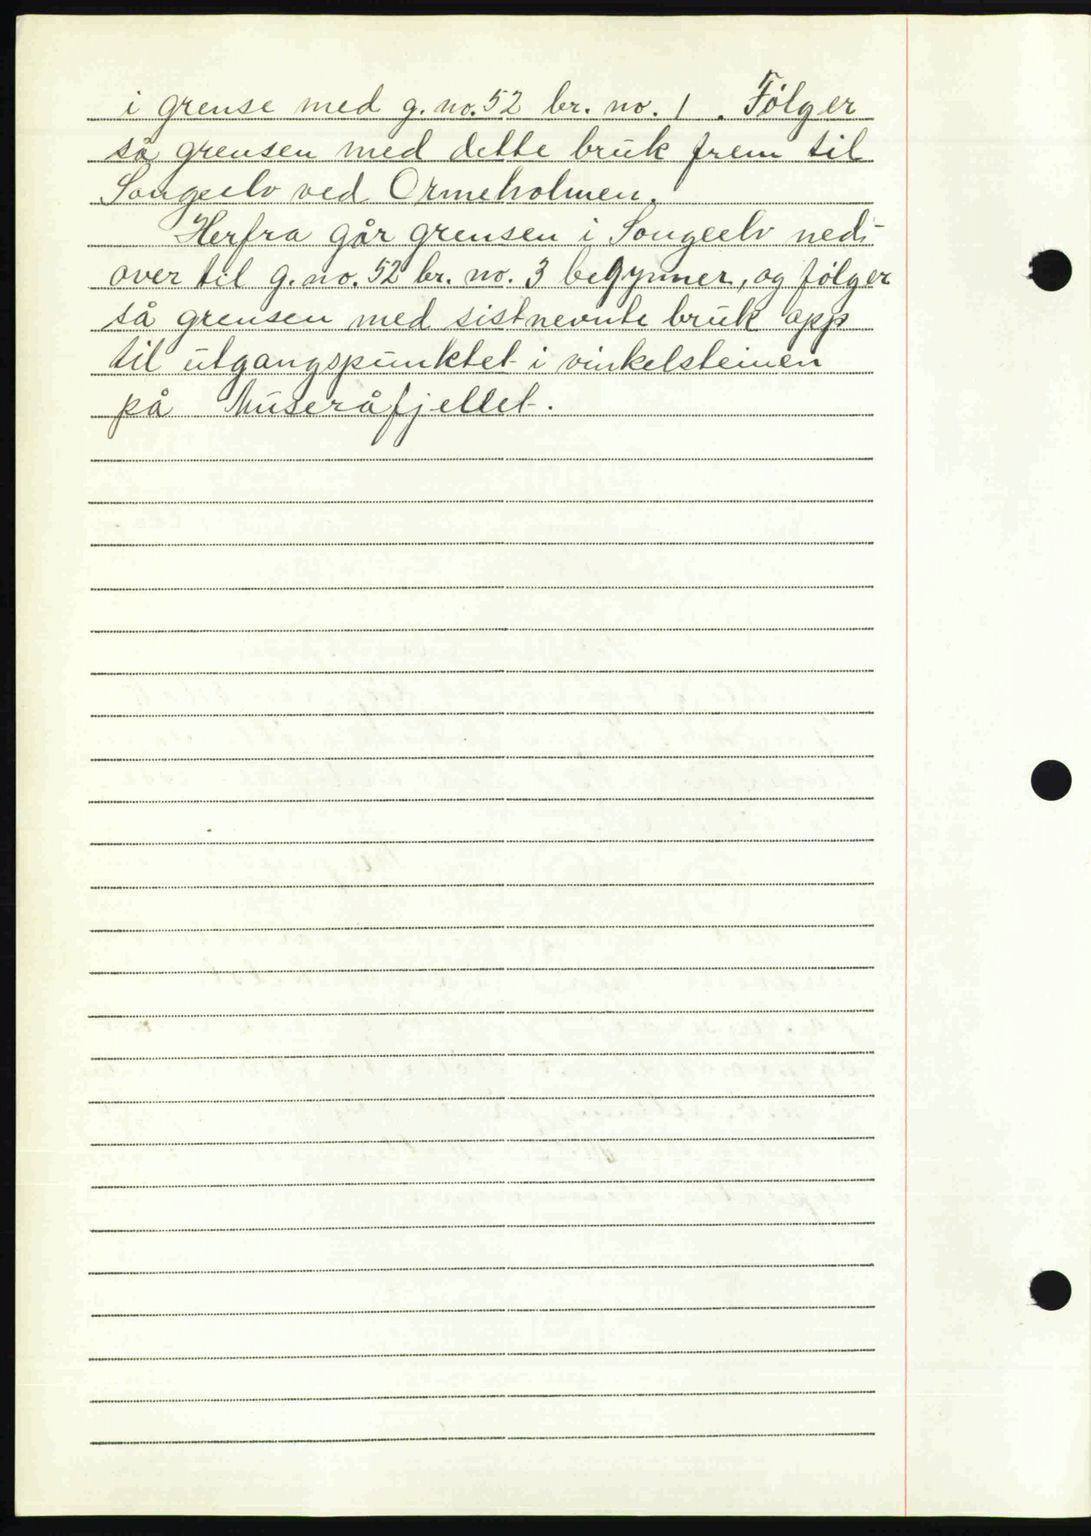 i grense med g. no. 52 br. no. 1. Følger
så grensen med dette bruk frem til
Songeelv ved Ormeholmen.
Herfra går grensen i Songeelv ned-
over til g. no. 52 br. no. 3 begynner, og følger
så grensen med sistnevnte bruk opp
til utgangspunktet i vinkelsteinen
på Museråfjellet.